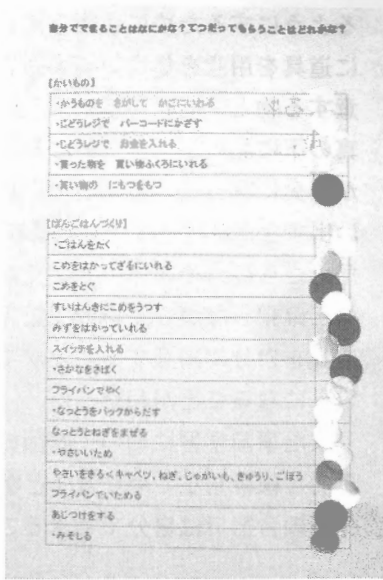 自分でできることはなにかな？てつだってもらうことはどれかな？
【かいもの】
・かうものを　さがして　かごにいれる
・じどうレジで　バーコードにかざす
・じどうレジで　お金を入れる
・買った物を　買い物ふくろにいれる
・買い物の　にもつをもつ
【ばんごはんづくり】
・ごはんをたく
こめをはかってざるにいれる
こめをとぐ
すいはんきにこめをうつす
みずをはかっていれる
スイッチを入れる
・さかなをさばく
フライパンでやく
・なっとうをパックからだす
なっとうとねぎをまぜる
・やさいいため
やさいをきる＜キャベツ、ねぎ、じゃがいも、きゅうり、ごぼう
フライパンでいためる
あじつけをする
・みそしる